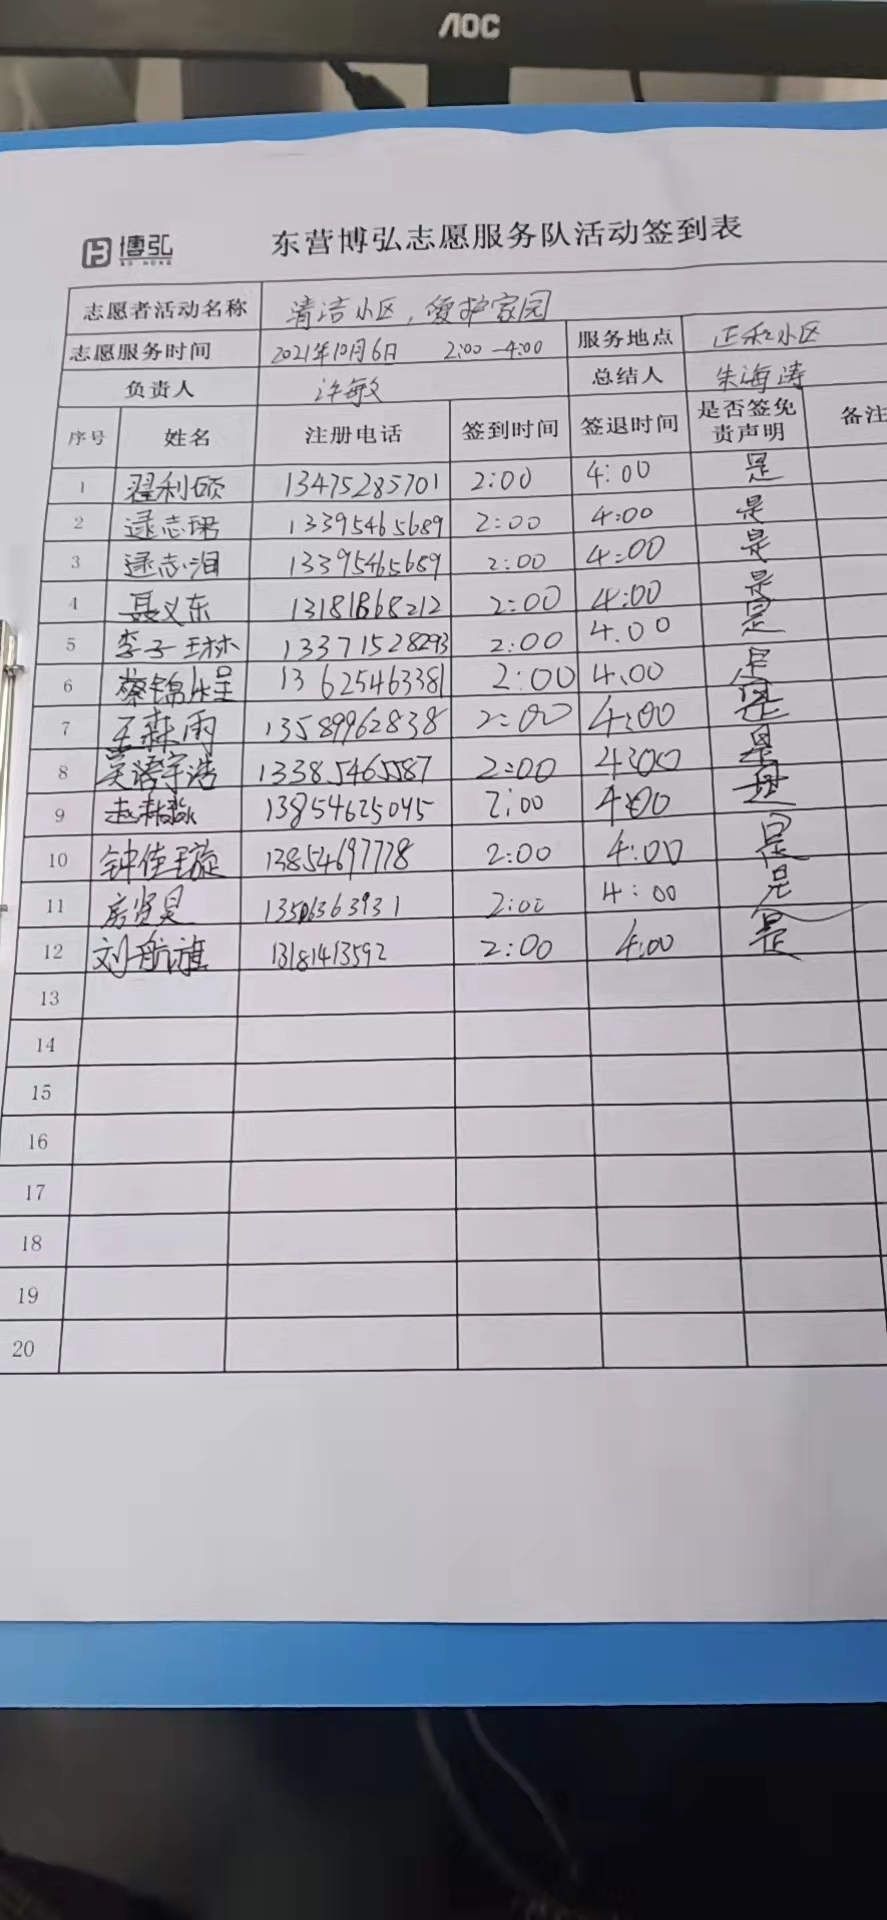 AOC
博弘
BO HONG
东营博弘志愿服务队活动签到表
志愿者活动名称 清洁小区,爱护家园
志愿服务时间 2021年10月6日 2:00-4:00 服务地点 正和小区
负责人 许敏 总结人 朱海涛
序号 姓名 注册电话 签到时间 签退时间 是否签免责声明 备注
1 翟利硕 13475285701 2:00 4:00 是
2 逯志珺 13395465689 2:00 4:00 是
3 逯志涓 13395465689 2:00 4:00 是
4 聂义东 13181868212 2:00 4:00 是
5 李子琳 13371528293 2:00 4:00 是
6 蔡锦呈 13625463381 2:00 4:00 是
7 王森雨 13589962838 2:00 4:00 是
8 吴语宇浩 13385465587 2:00 4:00 是
9 赵 13854625045 2:00 4:00 是
10 钟佳璇 13854697778 2:00 4:00 是
11 房贤昊 13506363931 2:00 4:00 是
12 刘航旗 13181413592 2:00 4:00 是
13
14
15
16
17
18
19
20